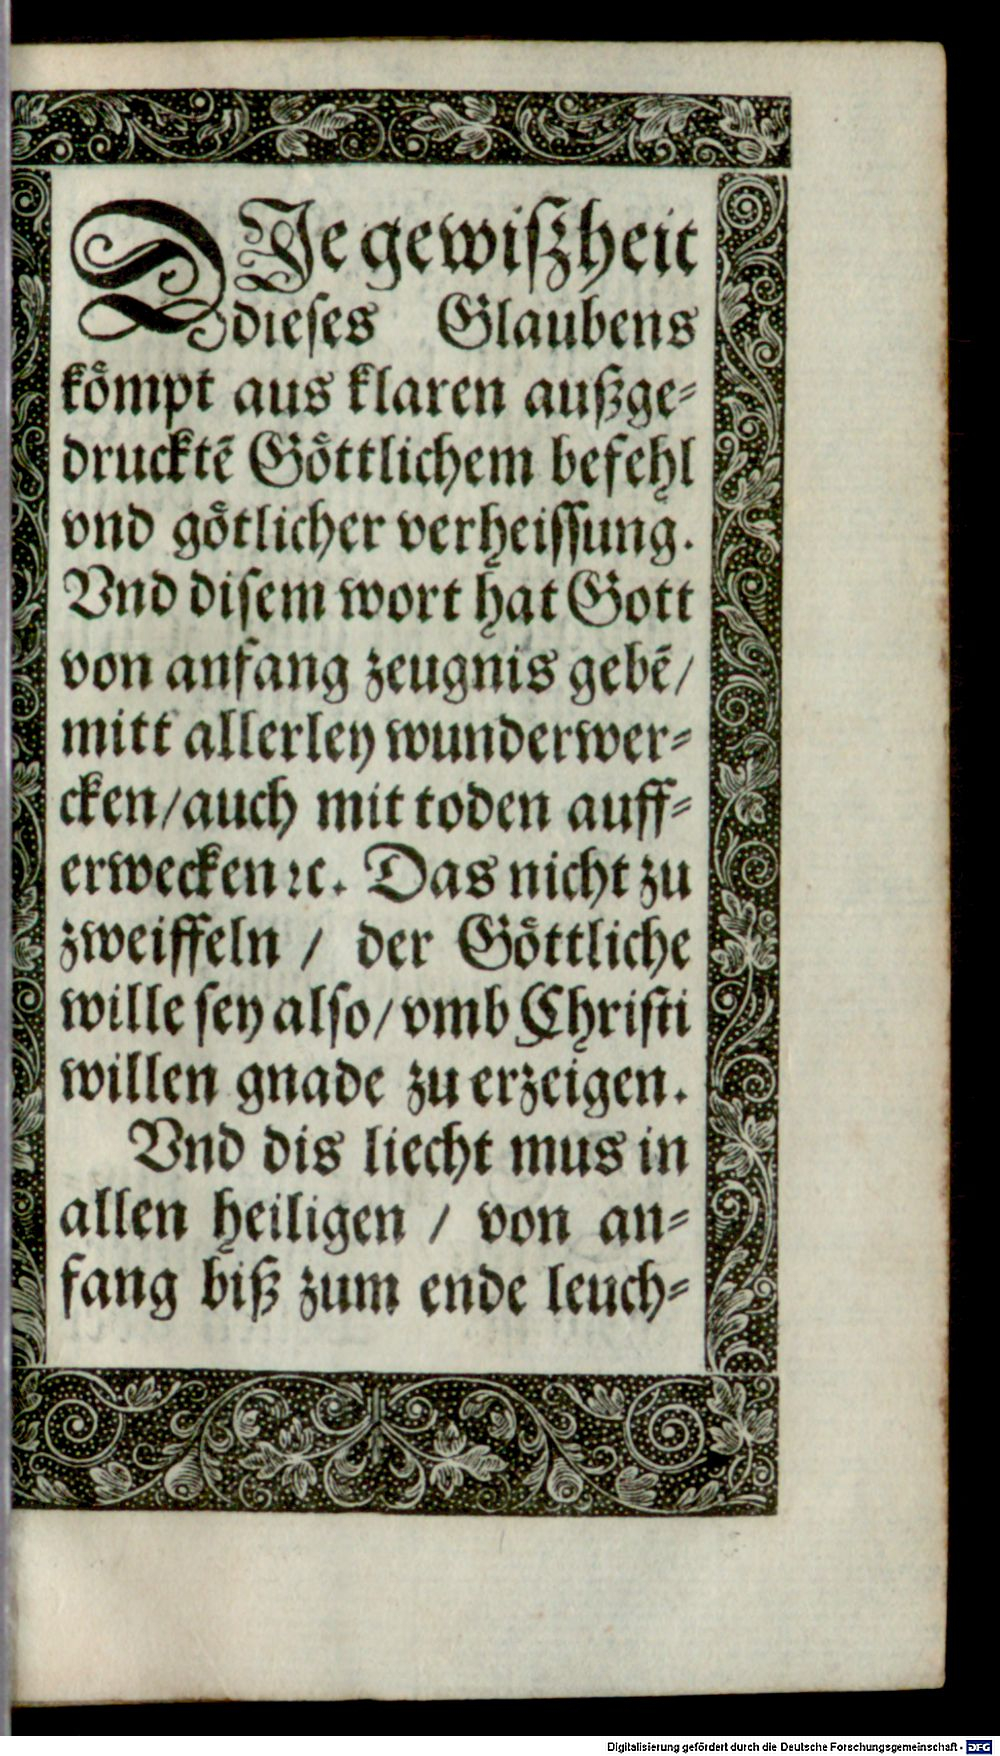 DJe gewißheit
dieses Glaubens
kömpt aus klaren außge-
drucktē Göttlichem befehl
vnd götlicher verheissung.
Vnd disem wort hat Gott
von anfang zeugnis gebē/
mitt allerley wunderwer-
cken/auch mit toden auff-
erwecken ꝛc. Das nicht zu
zweiffeln / der Göttliche
wille sey also/vmb Christi
willen gnade zu erzeigen.
Vnd dis liecht mus in
allen heiligen / von an-
fang biß zum ende leuch-
Digitalisierung gefördert durch die Deutsche Forschungsgemeinschaft - DFG